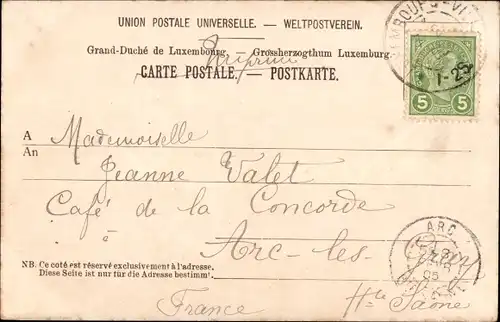 UNION POSTALE UNIVERSELLE. — WELTPOSTVEREIN.
Grand-Duché de Luxembourg. — Grossherzogthum Luxemburg.
Imprimé
CARTE POSTALE. — POSTKARTE.
LUXEMBOURG-VILLE
1-2S
5 5
A Mademoiselle
An Jeanne Valet
Café de la Concorde
à Arc-les-Gray
ARC
05
NB. Ce coté est réservé exclusivement à l'adresse.
Diese Seite ist nur für die Adresse bestimmt.
France Hte Saône